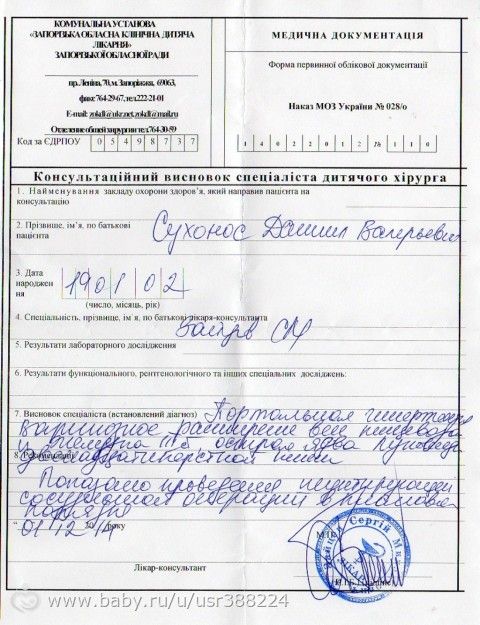 КОМУНАЛЬНА УСТАНОВА
«ЗАПОРІЗЬКА ОБЛАСНА КЛІНІЧНА ДИТЯЧА
ЛІКАРНЯ»
ЗАПОРІЗЬКОЇ ОБЛАСНОЇ РАДИ
пр. Леніна, 70, м. Запоріжжя, 69063,
факс 764-29-67, тел.222-21-01
E-mail: zokdl@ukr.net, zokdl@mail.ru
Отделение общей хирургии тел.764-30-59
Код за ЄДРПОУ 05498737
МЕДИЧНА ДОКУМЕНТАЦІЯ
Форма первинної облікової документації
Наказ МОЗ України № 028/о
14022012 № 110
Консультаційний висновок спеціаліста дитячого хірурга
1. Найменування закладу охорони здоров'я, який направив пацієнта на
консультацію
2. Прізвище, ім'я, по батькові Сухонос Даниил Валерьевич
пацієнта
3. Дата
народжен
ня 19 01 02
(число, місяць, рік)
4. Спеціальність, прізвище, ім'я, по батькові лікаря-консультанта
5. Результати лабораторного дослідження
6. Результати функціонального, рентгенологічного та інших спеціальних досліджень:
7. Висновок спеціаліста (встановлений діагноз) Портальная
Варикозное расширение вен пищевода
и желудка острая язва луковицы
8. Рекомендації двенадцатиперстной кишки
Показано проведение шунтирующей
сосудистой операции в плановом
порядке
01 12 14 року
М.П.
Лікар-консультант
Сергій
ЛІКАР
www.baby.ru/u/usr388224